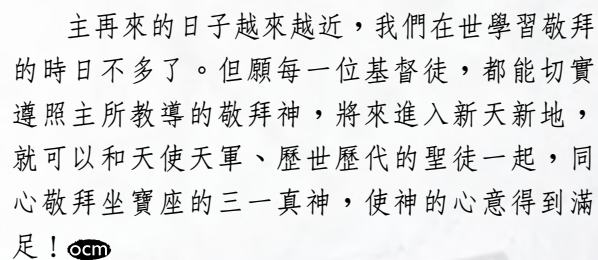 主再來的日子越來越近，我們在世學習敬拜
的時日不多了。但願每一位基督徒，都能切實
遵照主所教導的敬拜神，將來進入新天新地，
就可以和天使天軍、歷世歷代的聖徒一起，同
心敬拜坐寶座的三一真神，使神的心意得到滿
足！ocm